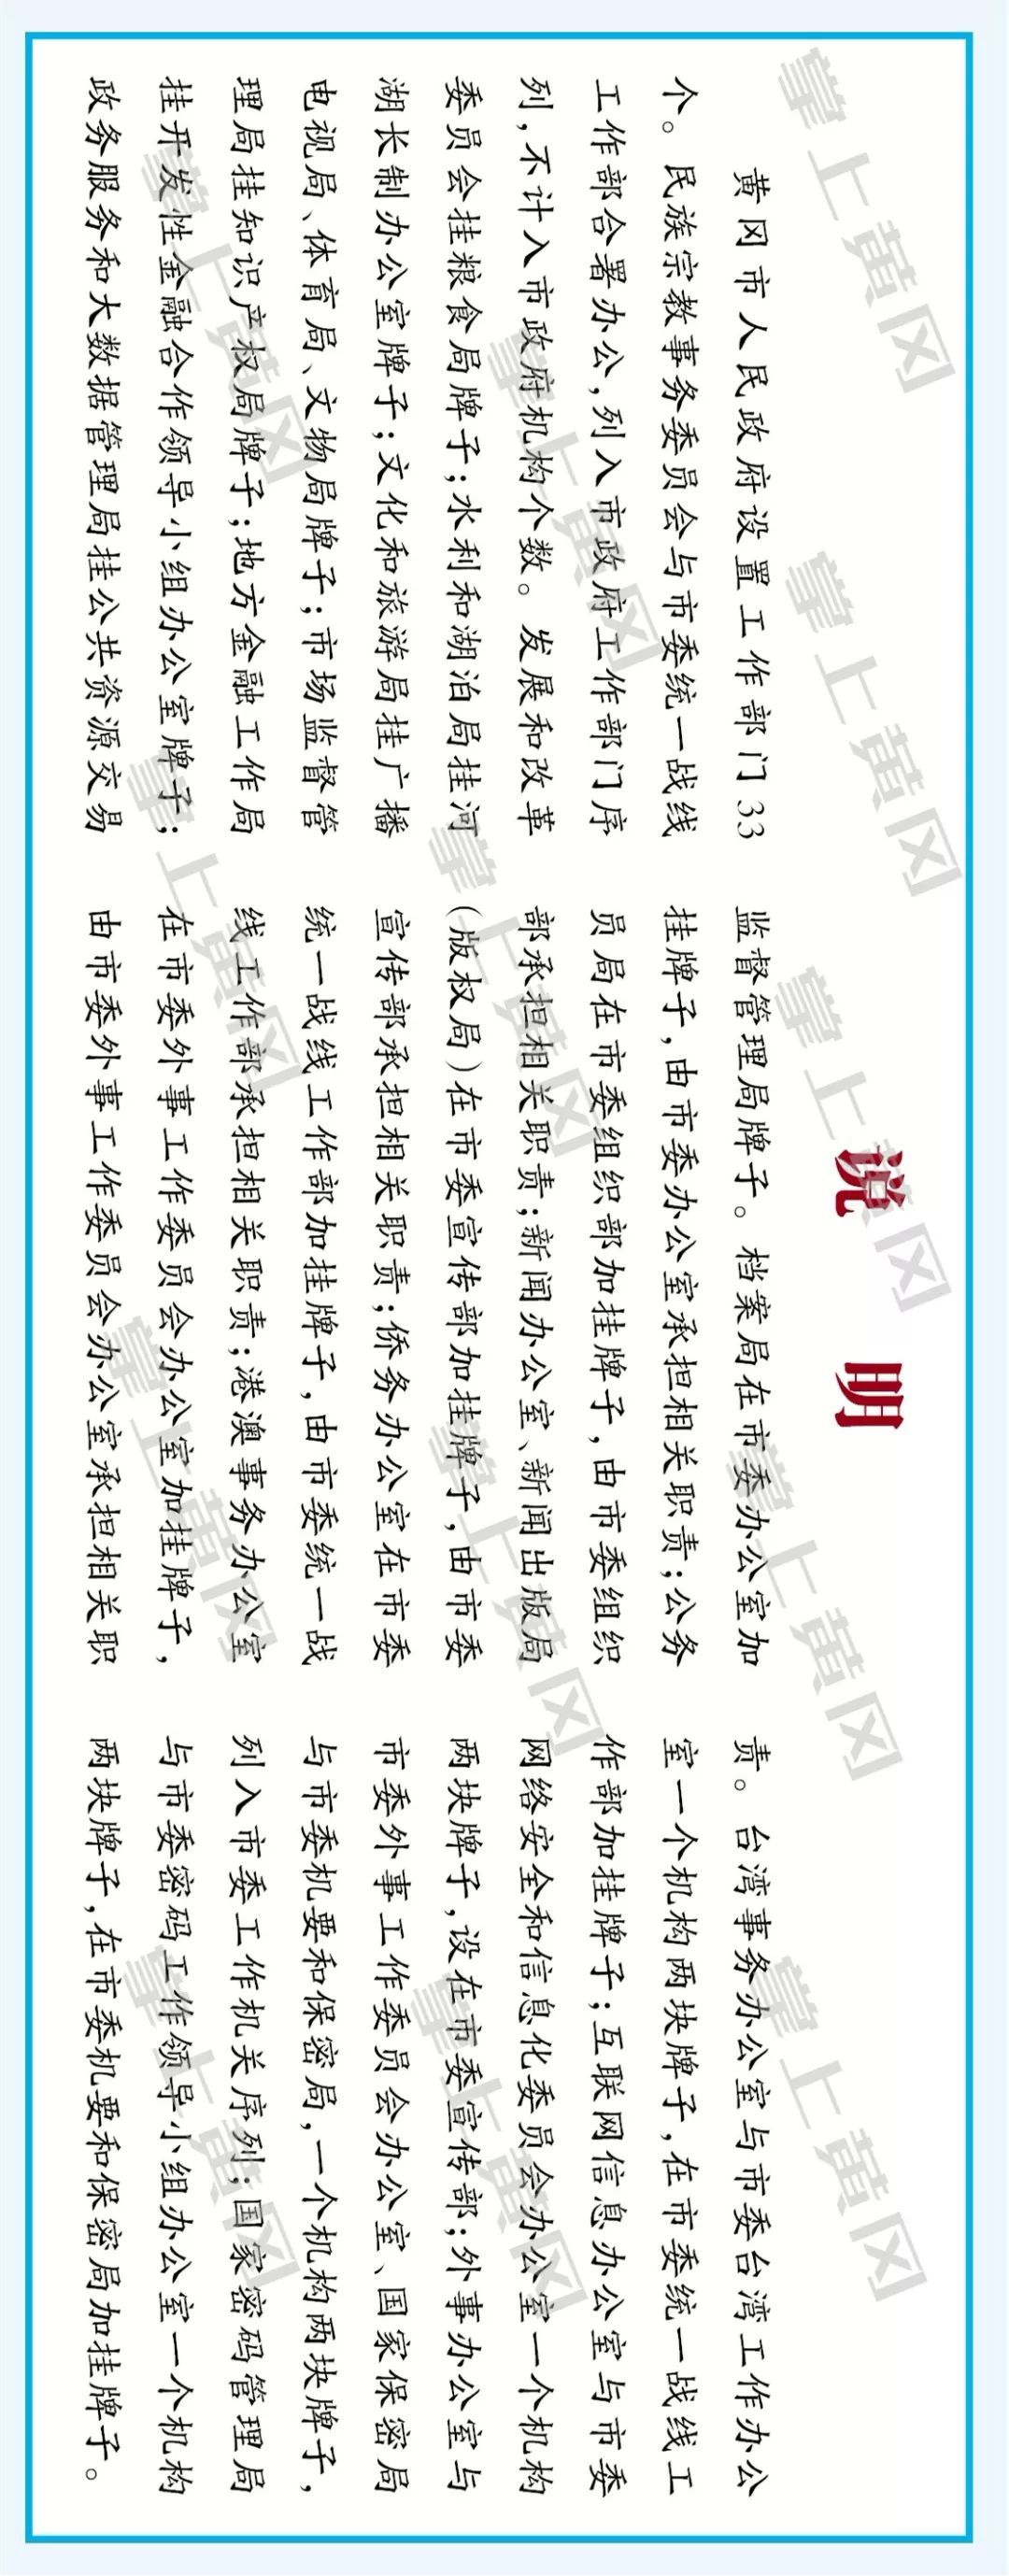 说明
黄冈市人民政府设置工作部门33
个。民族宗教事务委员会与市委统一战线
工作部合署办公，列入市政府工作部门序
列，不计入市政府机构个数。发展和改革
委员会挂粮食局牌子；水利和湖泊局挂河
湖长制办公室牌子；文化和旅游局挂广播
电视局、体育局、文物局牌子；市场监督管
理局挂知识产权局牌子；地方金融工作局
挂开发性金融合作领导小组办公室牌子；
政务服务和大数据管理局挂公共资源交易
监督管理局牌子。档案局在市委办公室加
挂牌子，由市委办公室承担相关职责；公务
员局在市委组织部加挂牌子，由市委组织
部承担相关职责；新闻办公室、新闻出版局
（版权局）在市委宣传部加挂牌子，由市委
宣传部承担相关职责；侨务办公室在市委
统一战线工作部加挂牌子，由市委统一战
线工作部承担相关职责；港澳事务办公室
在市委外事工作委员会办公室加挂牌子，
由市委外事工作委员会办公室承担相关职
责。台湾事务办公室与市委台湾工作办公
室一个机构两块牌子，在市委统一战线工
作部加挂牌子；互联网信息办公室与市委
网络安全和信息化委员会办公室一个机构
两块牌子，设在市委宣传部；外事办公室与
市委外事工作委员会办公室、国家保密局
与市委机要和保密局，一个机构两块牌子，
列入市委工作机关序列；国家密码管理局
与市委密码工作领导小组办公室一个机构
两块牌子，在市委机要和保密局加挂牌子。
掌上黄冈
掌上黄冈
掌上黄冈
掌上黄冈
掌上黄冈
掌上黄冈
掌上黄冈
掌上黄冈
掌上黄冈
掌上黄冈
掌上黄冈
掌上黄冈
掌上黄冈
掌上黄冈